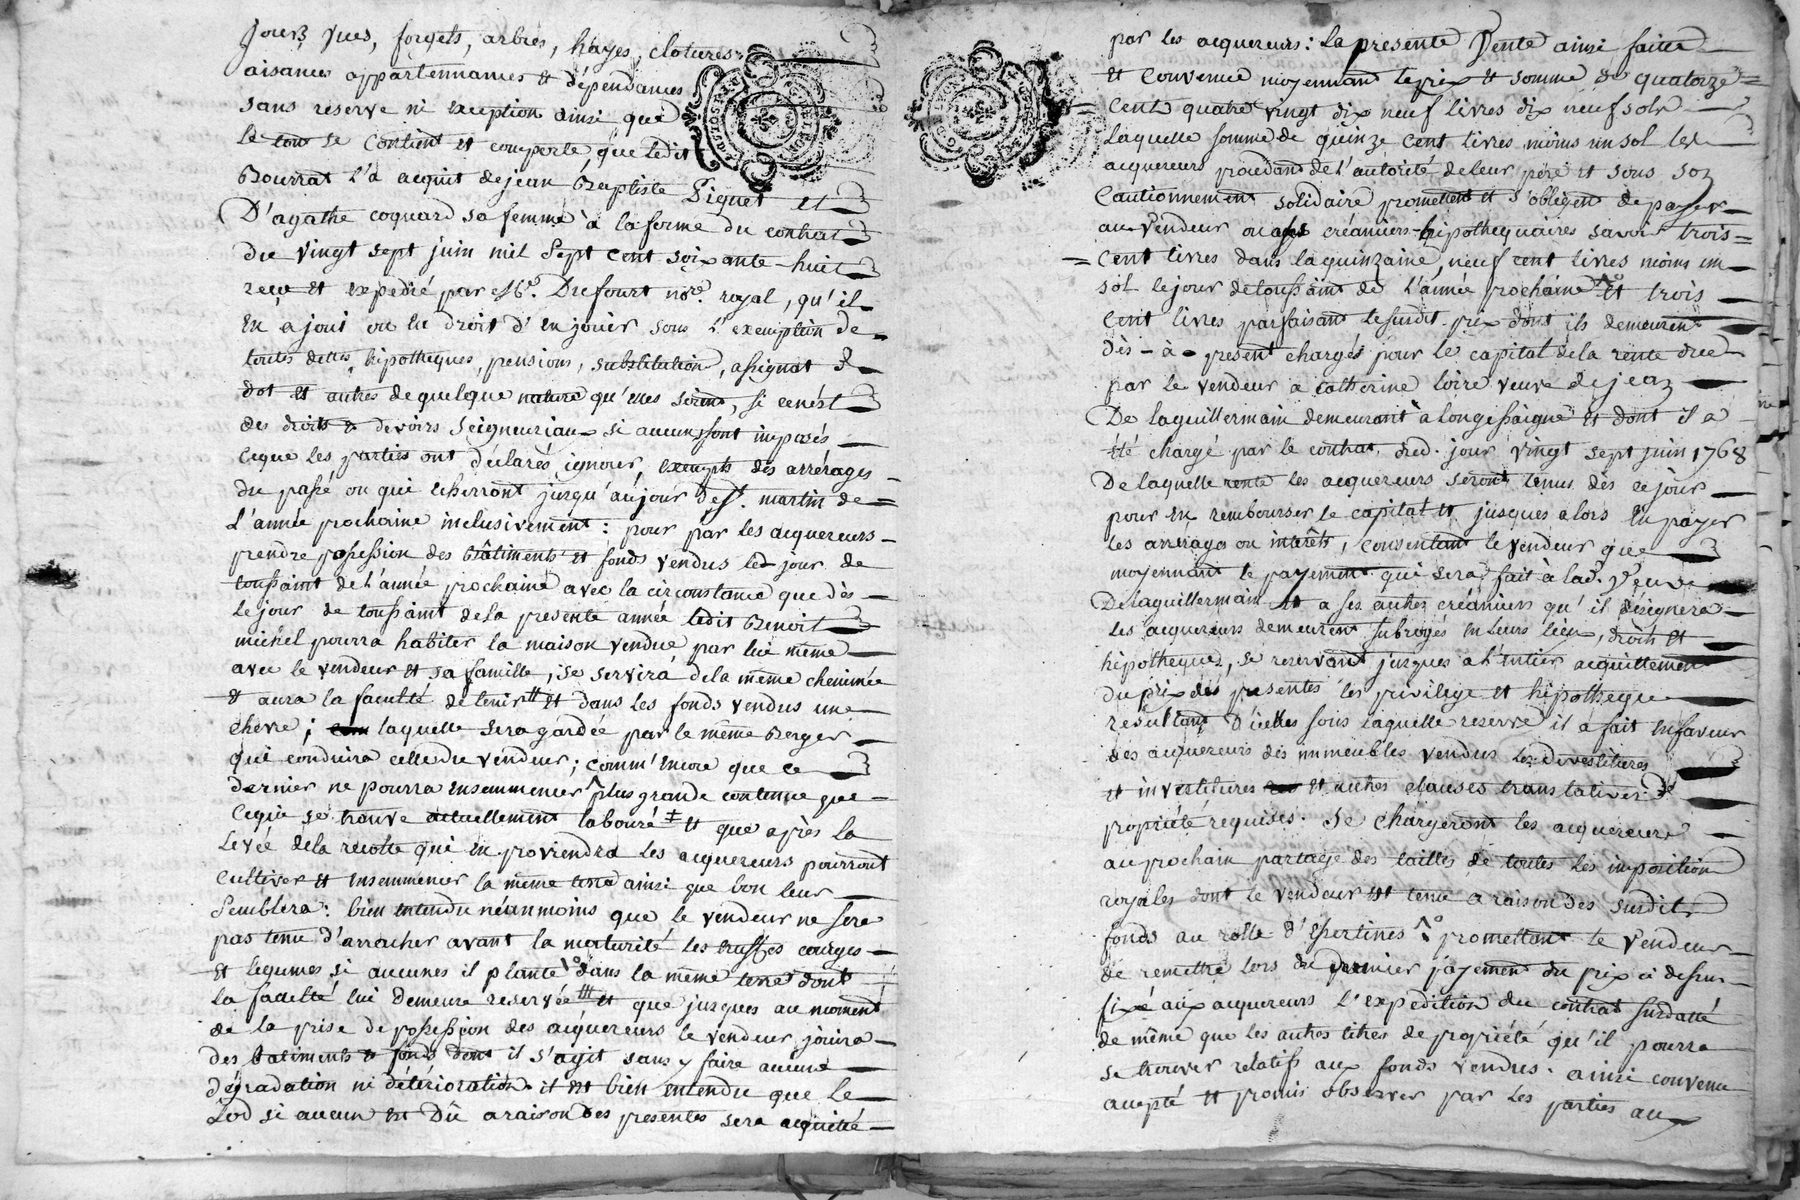 Jours, vues, forgets, arbres, hayes, clotures,
aisances appartennances et dépendances
sans reserve ni exception ainsi que
le tout se Contient et comporte, que ledit
Bourrat l'a acquit de jean Baptiste Piguet et
D'agathe coquard sa femme à la forme du contrat
Du vingt sept juin mil Sept cent soixante-huit
reçu et expedié par Me. Dufourt nore. royal, qu'il
en a joui ou eu droit d'en jouir sous l'exemption de
toutes dettes, hipotheques, pensions, substitution, assignat de
dot et autres de quelque nature qu'elles seront, si ce n'est
des droits et devoirs seigneuriaux si aucuns sont imposés
ceque les parties ont déclarés ignorer, exempts des arrérages
du passé ou qui echerront jusqu'au jour de St. martin de
L'année prochaine inclusivement : pour par les acquereurs
prendre possession des Bâtiments et fonds vendus led. jour de
toussaint de l'année prochaine avec la circonstance que dès
le jour de toussaint de la presente année ledit Benoit
michel pourra habiter la maison vendue par lui même
avec le vendeur et sa famille, se servira de la même cheminée
et aura la faculté de tenir et dans les fonds vendus une
chevre ; laquelle sera gardée par le même Berger
qui conduira celle du vendeur ; comm'encore que ce
dernier ne pourra ensemmencer plus grande contenue que
cequi se trouve actuellement labouré et que après la
Levée de la recolte qui en proviendra les acquereurs pourront
cultiver et ensemmencer la même terre ainsi que bon leur
Semblera : bien entendu néanmoins que le vendeur ne sera
pas tenu d'arracher avant la maturité les truffes courges
et legumes si aucunes il plante dans la même terre dont
la faculté lui demeure reservée et que jusques au moment
de la prise de possession des acquereurs le vendeur jouira
des batiments et fonds dont il s'agit sans y faire aucune
dégradation ni détérioration. il est bien entendu que le
Lod si aucun est Dû a raison des presentes sera acquitté
par les acquereurs : La presente Vente ainsi faite
et Convenue moyennant le prix et somme de quatorze
Cent quatre vingt dix neuf livres dix neuf sols
laquelle somme de quinze cent livres moins un sol les
acquereurs procedant de l'autorité de leur pere et sous son
Cautionnement solidaire promettent et s'obligent de payer
au Vendeur ou a ses créanciers hipothequaires savoir trois
Cent livres dans la quinzaine, neuf cent livres moins un
sol le jour de toussaint de l'année prochaine et trois
Cent livres parfaisant le susdit prix dont ils demeurent
dès-à-present chargés pour le capital de la rente due
par le vendeur a catherine loire veuve de jean
De laguillermain demeurant a longessaigne et dont il a
été chargé par le contrat dud. jour vingt sept juin 1768
De laquelle rente les acquereurs seront tenus dès ce jour
pour en rembourser le capital et jusques alors en payer
les arrerages ou interêts, consentant le vendeur que
moyennant le payement qui sera fait à lad. Veuve
Delaguillermain et a ses autres créanciers qu'il désignera
les acquereurs demeurent subrogés en leurs lieu, droits et
hipotheques, se reservant jusques a l'entier acquittement
du prix des presentes les privilege et hipotheque
resultant D'icelles sous laquelle reserve il a fait en faveur
des acquereurs des immeubles vendus les divestitures
et investitures et autres clauses translatives de
propriété requises. se chargeront les acquereurs
au prochain partage des tailles de toutes les imposition
royales dont le vendeur est tenu a raison des susdits
fonds au rolle d'Essertines promettant le Vendeur
de remettre lors du dernier payement du prix ci dessus
fixé aux acquereurs l'expedition du contrat susdatté
de même que les autres titres de propriété qu'il pourra
se trouver relatifs aux fonds vendus. ainsi convenu
accepté et promis observer par les parties aux